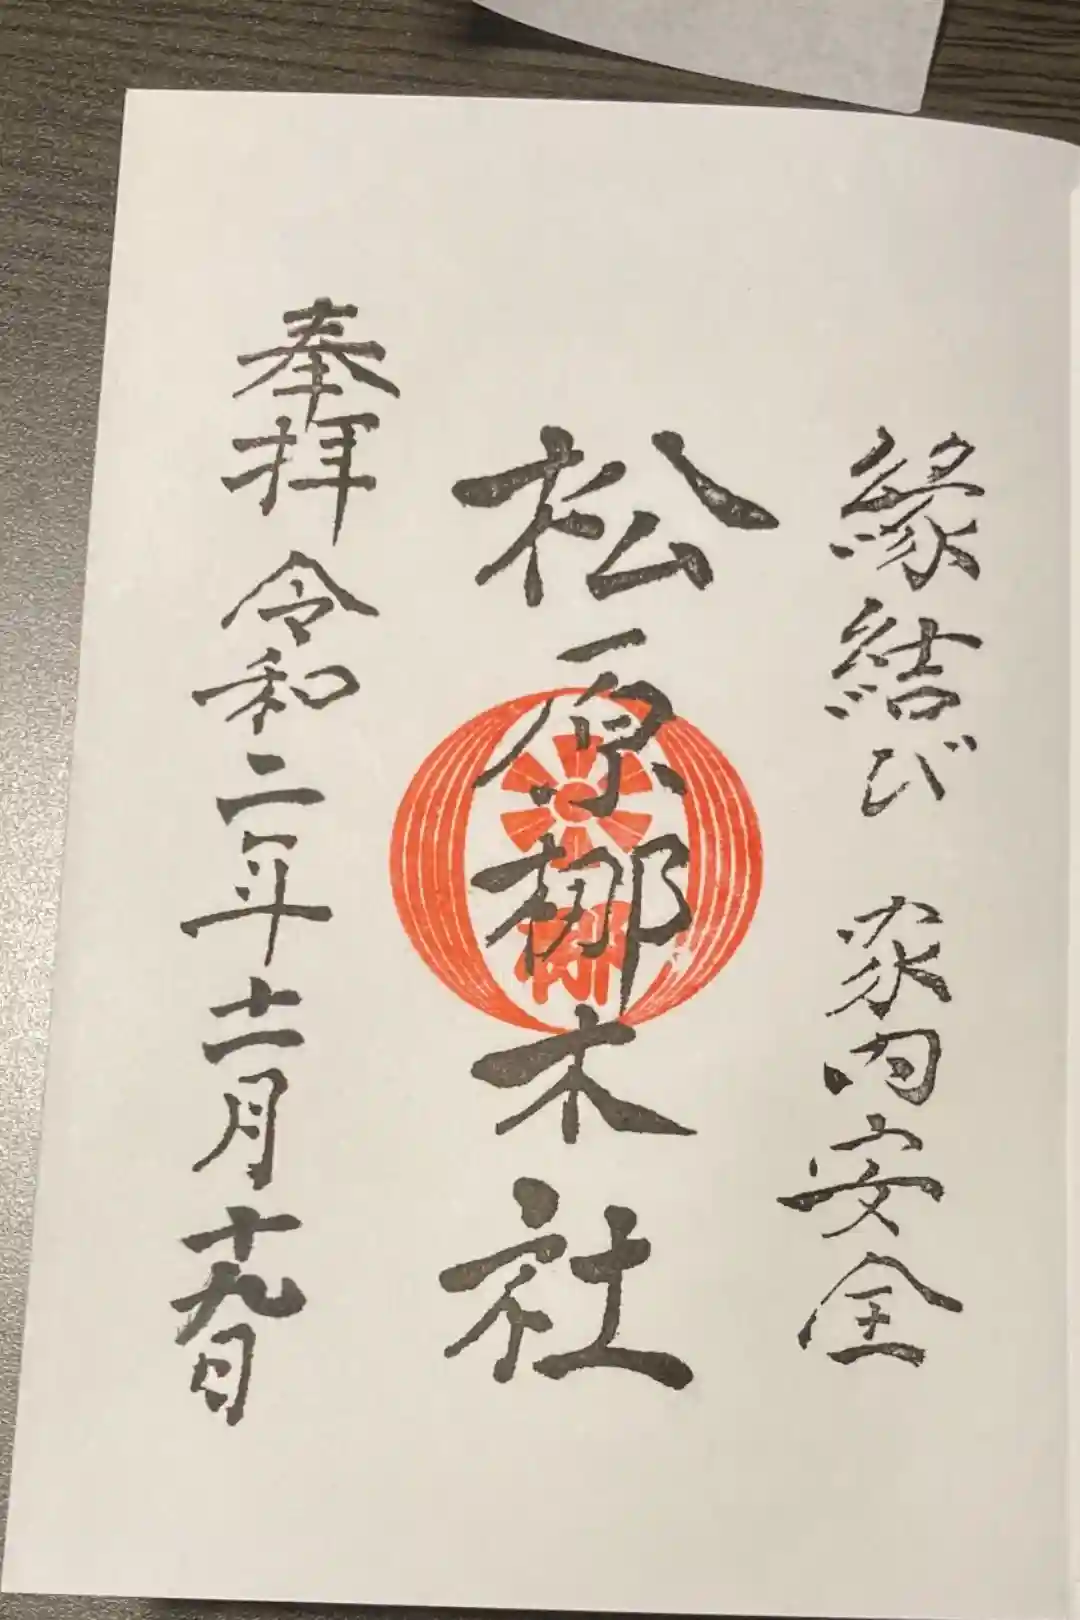 縁結び 家内安全
松原梛木社
奉拝 令和二年十二月十九日
梛